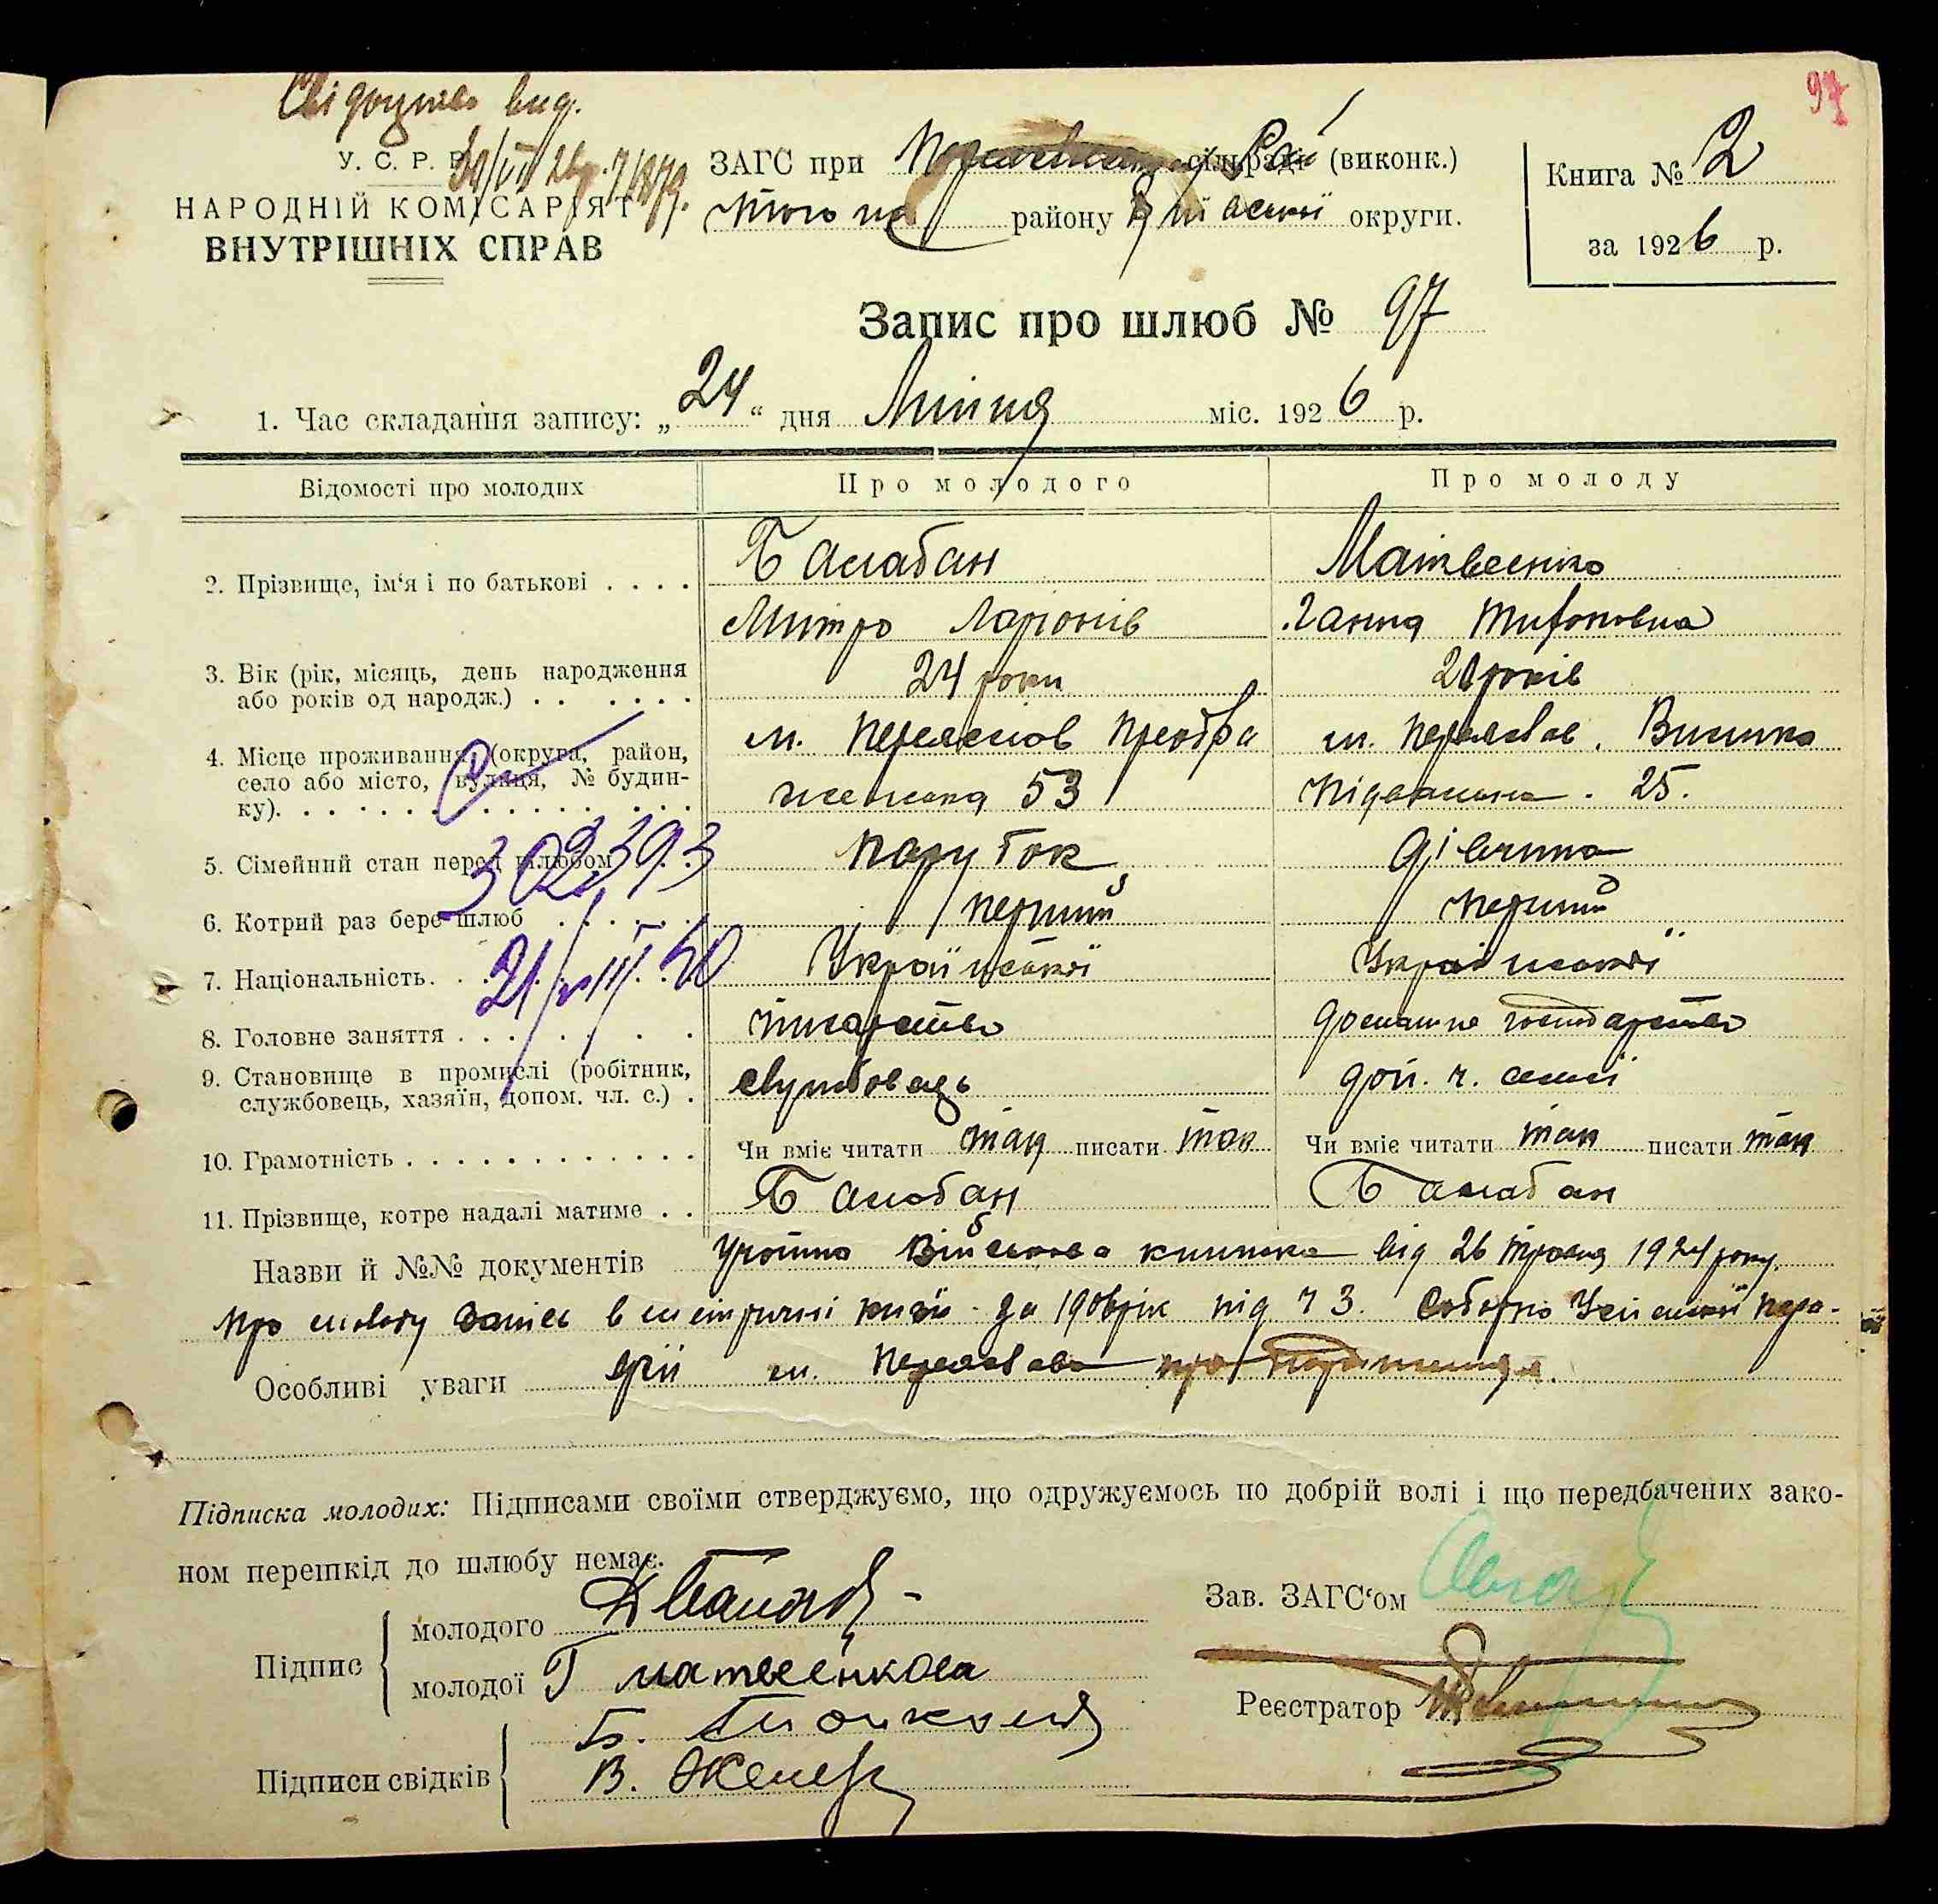 Свідоцтво вид.
97
У. С. Р. Р.
НАРОДНІЙ КОМІСАРІЯТ
ВНУТРІШНІХ СПРАВ
ЗАГС при сільраді (виконк.)
того ж району округи.
Книга № 2
за 1926 р.
Запис про шлюб № 97
1. Час складання запису: „24“ дня Липня міс. 1926 р.
Відомості про молодих Про молодого Про молоду
2. Прізвище, ім‘я і по батькові . . . . Балабан Матвеенко
Митро Ларіонів Ганна Тифоновна
3. Вік (рік, місяць, день народження
або років од народж.) . . . . . . 24 роки 20 років
4. Місце проживання (округа, район,
село або місто, вулиця, № будинку). м. Переяслов Преобра
женська 53
м. Переяслав.
Підвальна. 25.
5. Сімейний стан перед шлюбом Парубок дівчина
302393
6. Котрий раз бере шлюб перший перший
7. Національність. Української Української
21/VIII. 50
8. Головне заняття писарство домашне господарство
9. Становище в промислі (робітник,
службовець, хазяїн, допом. чл. с.) . службовець доп. ч. семії
10. Грамотність Чи вміє читати так писати так Чи вміє читати так писати так
11. Прізвище, котре надалі матиме . . Балабан Балабан
Назви й №№ документів Учотно Військова книжка від 26 травня 1924 року.
Про молоду запис в метричні книзі за рік під ч 3. Соборно Успенської пара-
Особливі уваги фії м. Переяслава про народження.
Підписка молодих: Підписами своїми стверджуємо, що одружуємось по добрій волі і що передбачених зако-
ном перешкід до шлюбу немає.
Підпис молодого Д Балаб
молодої Г матвеенкова
Зав. ЗАГС‘ом
Реєстратор
Підписи свідків